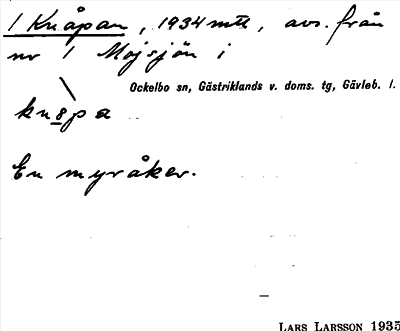 1 Knåpan, 1934 mtl, avs. från
nr 1 Mojsjön i
Ockelbo sn, Gästriklands v. doms. tg, Gävleb. l.
kn8pa
En myråker.
LARS LARSSON 1935